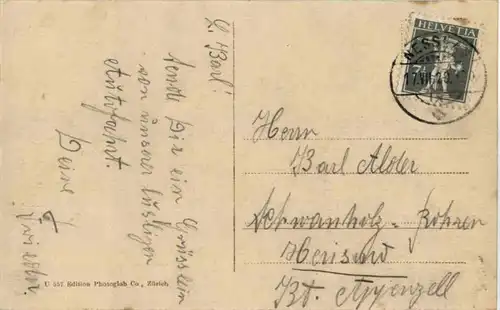 L. Karl!
sende Dir ein Grüsslein
von unserer lustigen
Autofahrt.
Deine
HELVETIA
7½
NESS
17.VII
Herrn
Karl Alder
Schwanholz - Rohren
Herisau
Kt. Appenzell
U 557 Edition Photoglob Co., Zürich